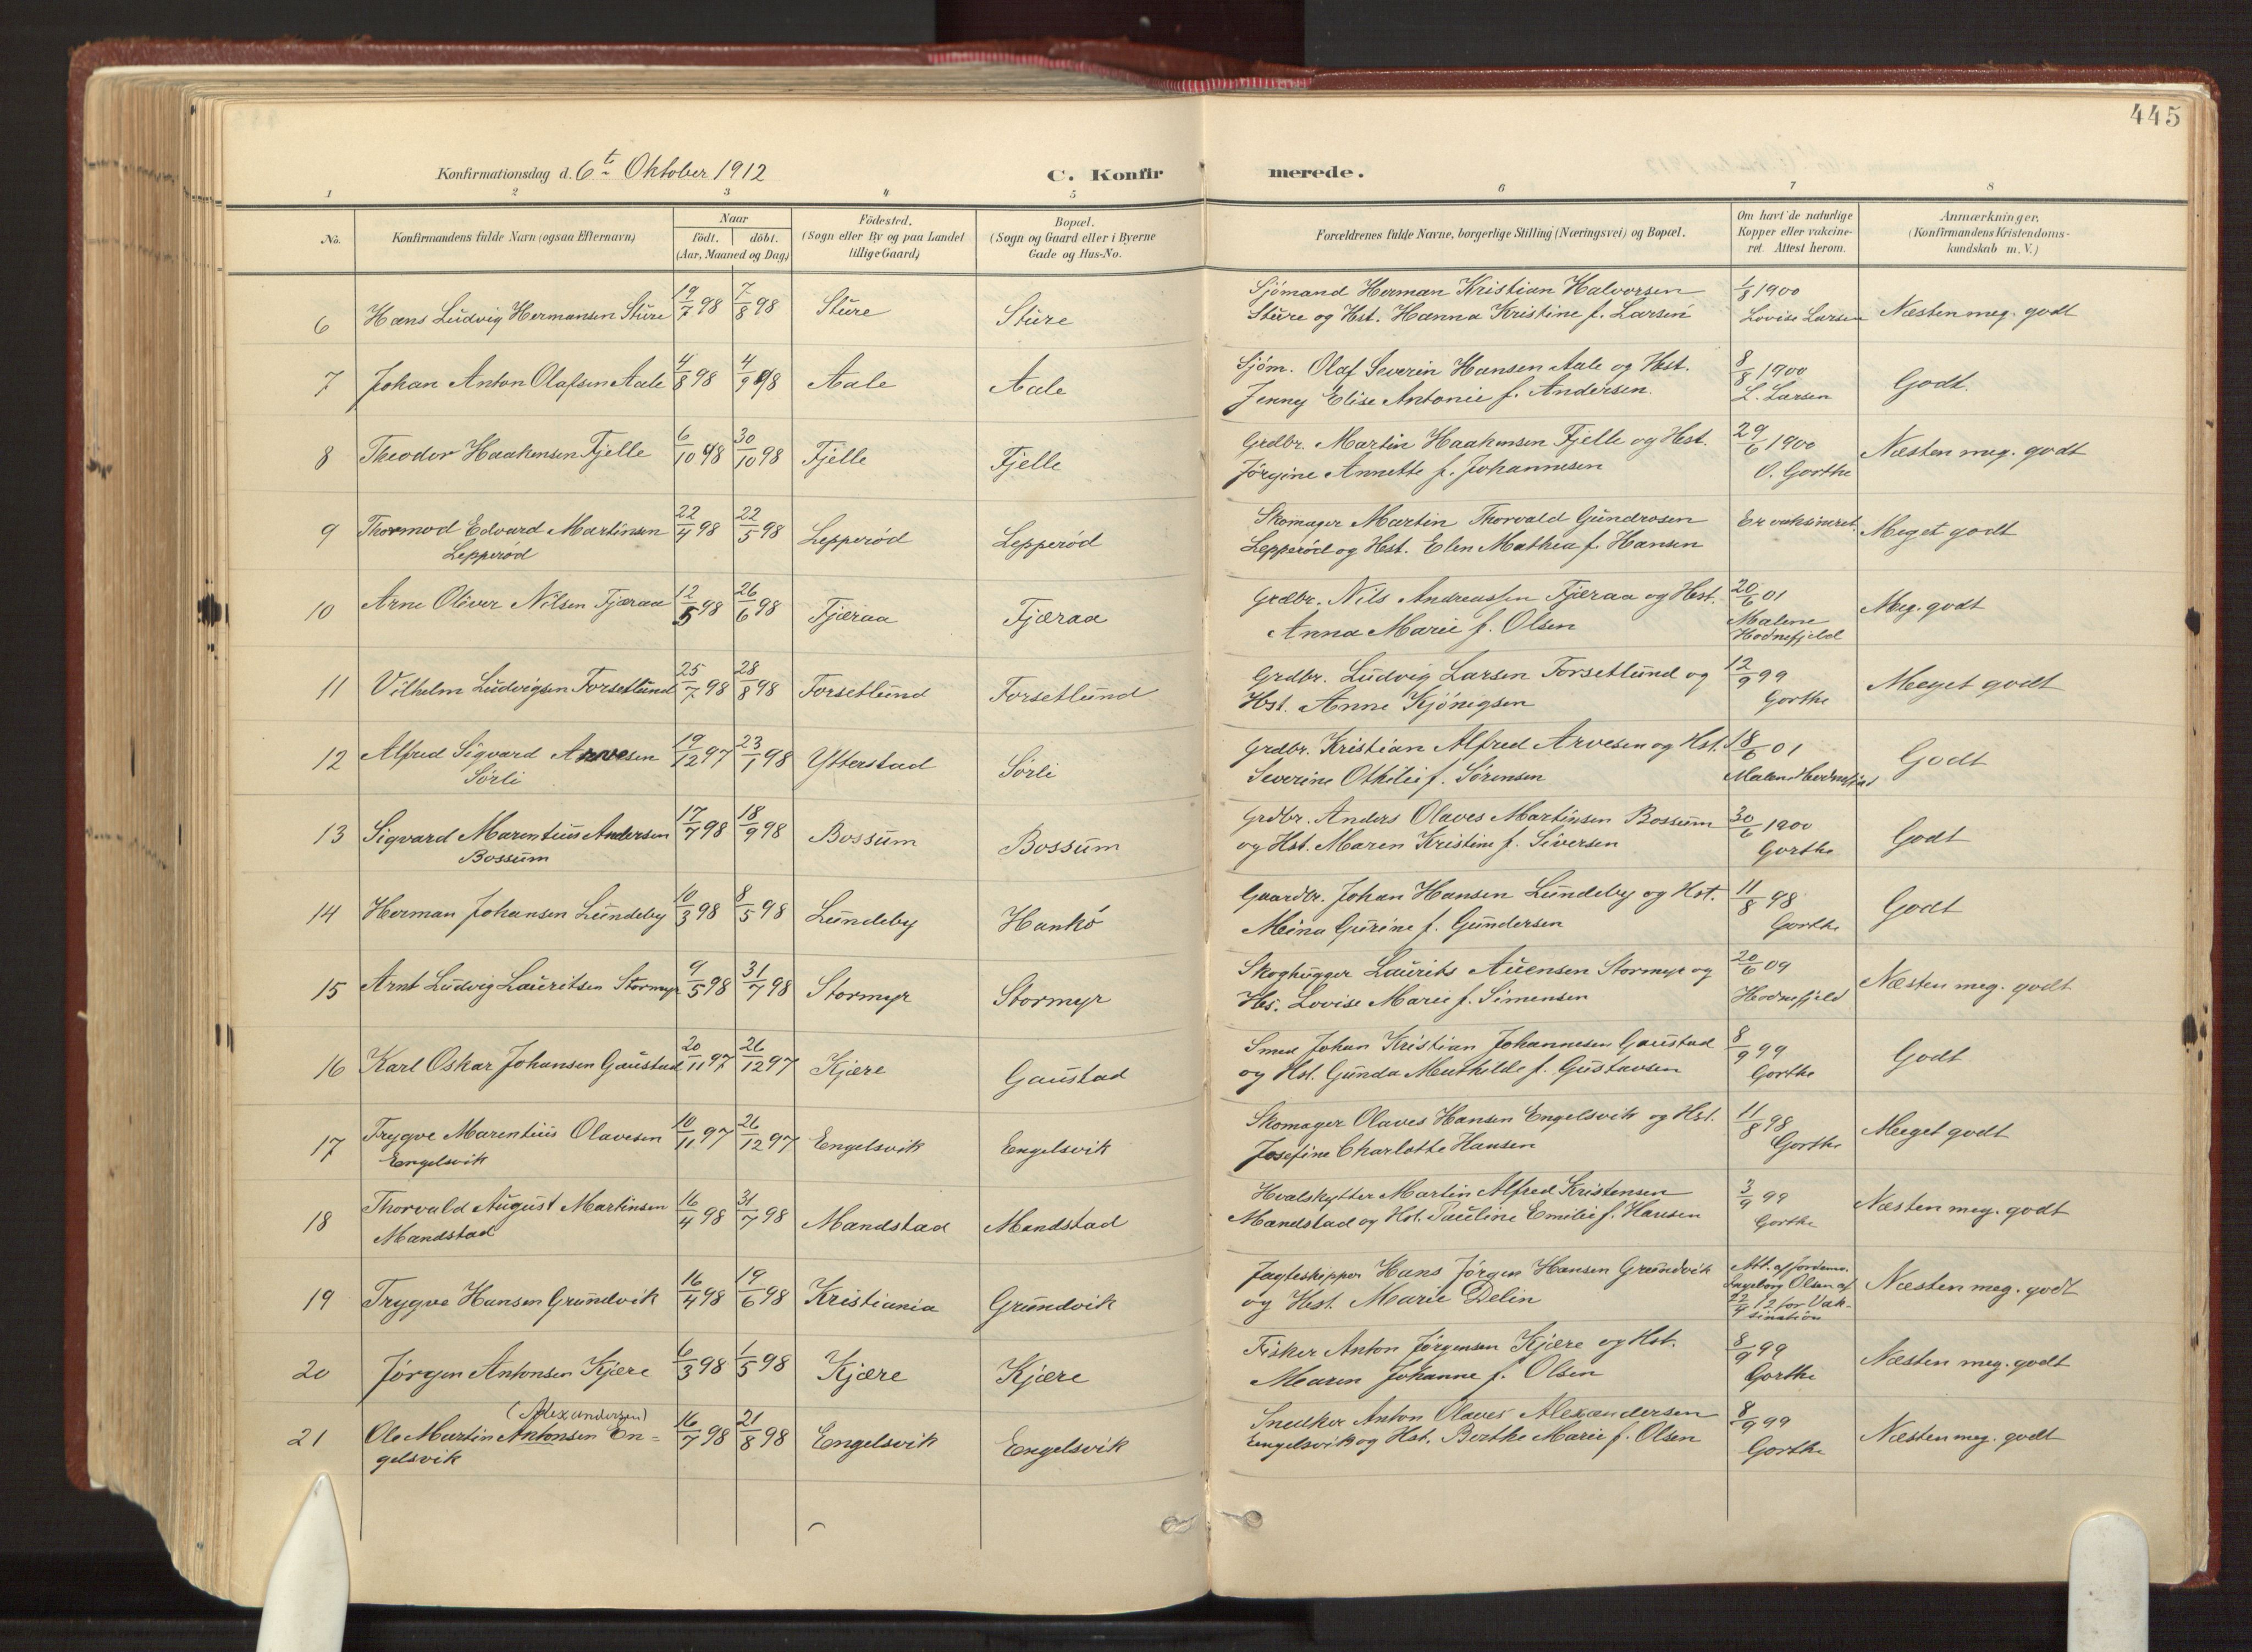 445
Konfirmationsdag d. 6te Oktober 1912
C. Konfirmerede.
1 2 3 4 5 6 7 8
No.
Konfirmandens fulde Navn (ogsaa Efternavn)
Naar
födt. döbt.
(Aar, Maaned og Dag)
Födested.
(Sogn eller By og paa Landet
tillige Gaard)
Bopæl.
(Sogn og Gaard eller i Byerne
Gade og Hus-No.
Forældrenes fulde Navne, borgerlige Stilling (Næringsvei) og Bopæl.
Om havt de naturlige
Kopper eller vakcine-
ret. Attest herom.
Anmærkninger.
(Konfirmandens Kristendoms-
kundskab m. V.)
6 Hans Ludvig Hermansen Sture 19/7 98 7/8 98 Sture Sture
Sjómand Herman Kristian Halvorsen
Sture og Hst. Hanna Kristine f. Larsen
1/8 1900
Lovise Larsen
Næsten meg. godt
7 Johan Anton Olafsen Aale 4/8 98 4/9 98 Aale Aale
Sjóm. Olaf Severin Hansen Aale og Hst.
Jenny Elise Antonie f. Andersen.
8/8 1900
L. Larsen
Godt.
8 Theodor Haakensen Fjelle 6/10 98 30/10 98 Fjelle Fjelle
Grdbr. Martin Haakensen Fjelle og Hst.
Jørgine Annette f. Johannesen
29/6 1900
O. Gorthe
Næsten meg. godt
9 Thormod Edvard Martinsen 22/4 98 22/5 98 Lepperód Lepperód
Lepperód
Skomager Martin Thorvald Gundrosen
Lepperód og Hst. Elen Mathea f. Hansen
Er vaksineret.
Meget godt
10 Arne Oliver Nilsen Fjæraa 12/5 98 26/6 98 Fjæraa Fjæraa
Grdbr. Nils Andreassen Fjæraa og Hst.
Anna Marie f. Olsen
20/6 01
Malene
Hodnefjeld
Meg. godt
11 Vilhelm Ludvigsen Forsetlund 25/7 98 28/8 98 Forsetlund Forsetlund
Grdbr. Ludvig Larsen Forsetlund og
Hst. Anne Kjónigsen
12/9 99
Gorthe
Meget godt
12 Alfred Sigvard Arvesen 19/12 97 23/1 98 Ytterstad Sórli
Sórli
Grdbr. Kristian Alfred Arvesen og Hst.
Severine Othilie f. Sórensen
18/6 01
Malene Hodnefjeld
Godt
13 Sigvard Marentius Andersen 17/7 98 18/9 98 Bossum Bossum
Bossum
Grdbr. Anders Olaves Martinsen Bossum
og Hst. Maren Kristine f. Siversen
30/6 1900
Gorthe
Godt
14 Herman Johansen Lundeby 10/3 98 8/5 98 Lundeby Hankó
Gaardbr. Johan Hansen Lundeby og Hst.
Mina Gurine f. Gundersen
11/8 98
Gorthe
Godt
15 Arnt Ludvig Lauritsen Stormyr 9/5 98 31/7 98 Stormyr Stormyr
Skoghugger Laurits Auensen Stormyr og
Hs. Lovise Marie f. Simensen
20/6 09
Hodnefjeld
Næsten meg. godt
16 Karl Oskar Johansen Gaustad 20/11 97 26/12 97 Kjære Gaustad
Smed Johan Kristian Johannesen Gaustad
og Hst. Gunda Mathilde f. Gustavsen
8/9 99
Gorthe
Godt
17 Trygve Marentius Olavesen 10/11 97 26/12 97 Engelsvik Engelsvik
Engelsvik
Skomager Olaves Hansen Engelsvik og Hst.
Josefine Charlotte Hansen
11/8 98
Gorthe
Meget godt
18 Thorvald August Martinsen 16/4 98 31/7 98 Mandstad Mandstad
Mandstad
Hvalskytter Martin Alfred Kristensen
Mandstad og Hst. Pauline Emilie f. Hansen
3/9 99
Gorthe
Næsten meg. godt
19 Trygve Hansen Grundvik 16/4 98 19/6 98 Kristiania Grundvik
Jagteskipper Hans Jørgen Hansen Grundvik
og Hst. Marie Delin
Att. af jordemo.
Ingeborg Olsen af
22/4 12 for Vak-
sination
Næsten meg. godt
20 Jørgen Antonsen Kjære 6/3 98 1/5 98 Kjære Kjære
Fisker Anton Jørgensen Kjære og Hst.
Maren Johanne f. Olsen
8/9 99
Gorthe
Næsten meg. godt
(Alexandersen)
21 Ole Martin Antonsen En= 16/7 98 21/8 98 Engelsvik Engelsvik
gelsvik
Snedker Anton Olaves Alexandersen
Engelsvik og Hst. Berthe Marie f. Olsen
8/9 99
Gorthe
Næsten meg. godt